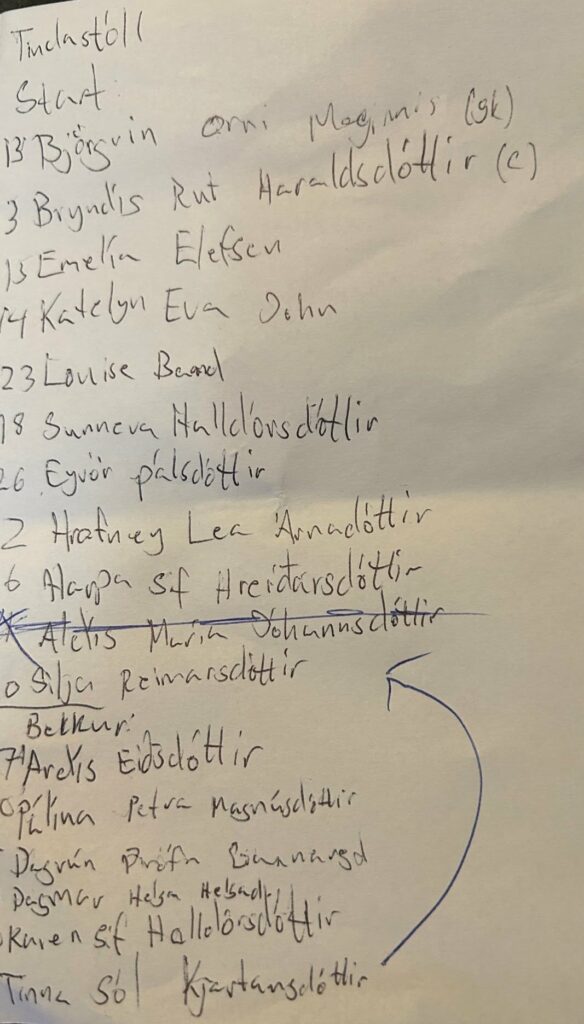 Tindastóll
Start:
13 Björgvin Orri Magnnis (gk)
3 Bryndís Rut Haraldsdóttir (c)
15 Emelía Elefsen
14 Katelyn Eva John
23 Louise
18 Sunneva Halldórsdóttir
26 Eyvör pálsdóttir
2 Hrafney Lea Árnadóttir
6 Harpa Sif Hreiðarsdóttir
María Jóhannsdóttir
0 Silja Reimarsdóttir
Bekkur:
71 Eiðsdóttir
Petra Magnúsdóttir
Dagrún
Dagmar Helga
Karen Sif Halldórsdóttir
Tinna Sól Kjartansdóttir